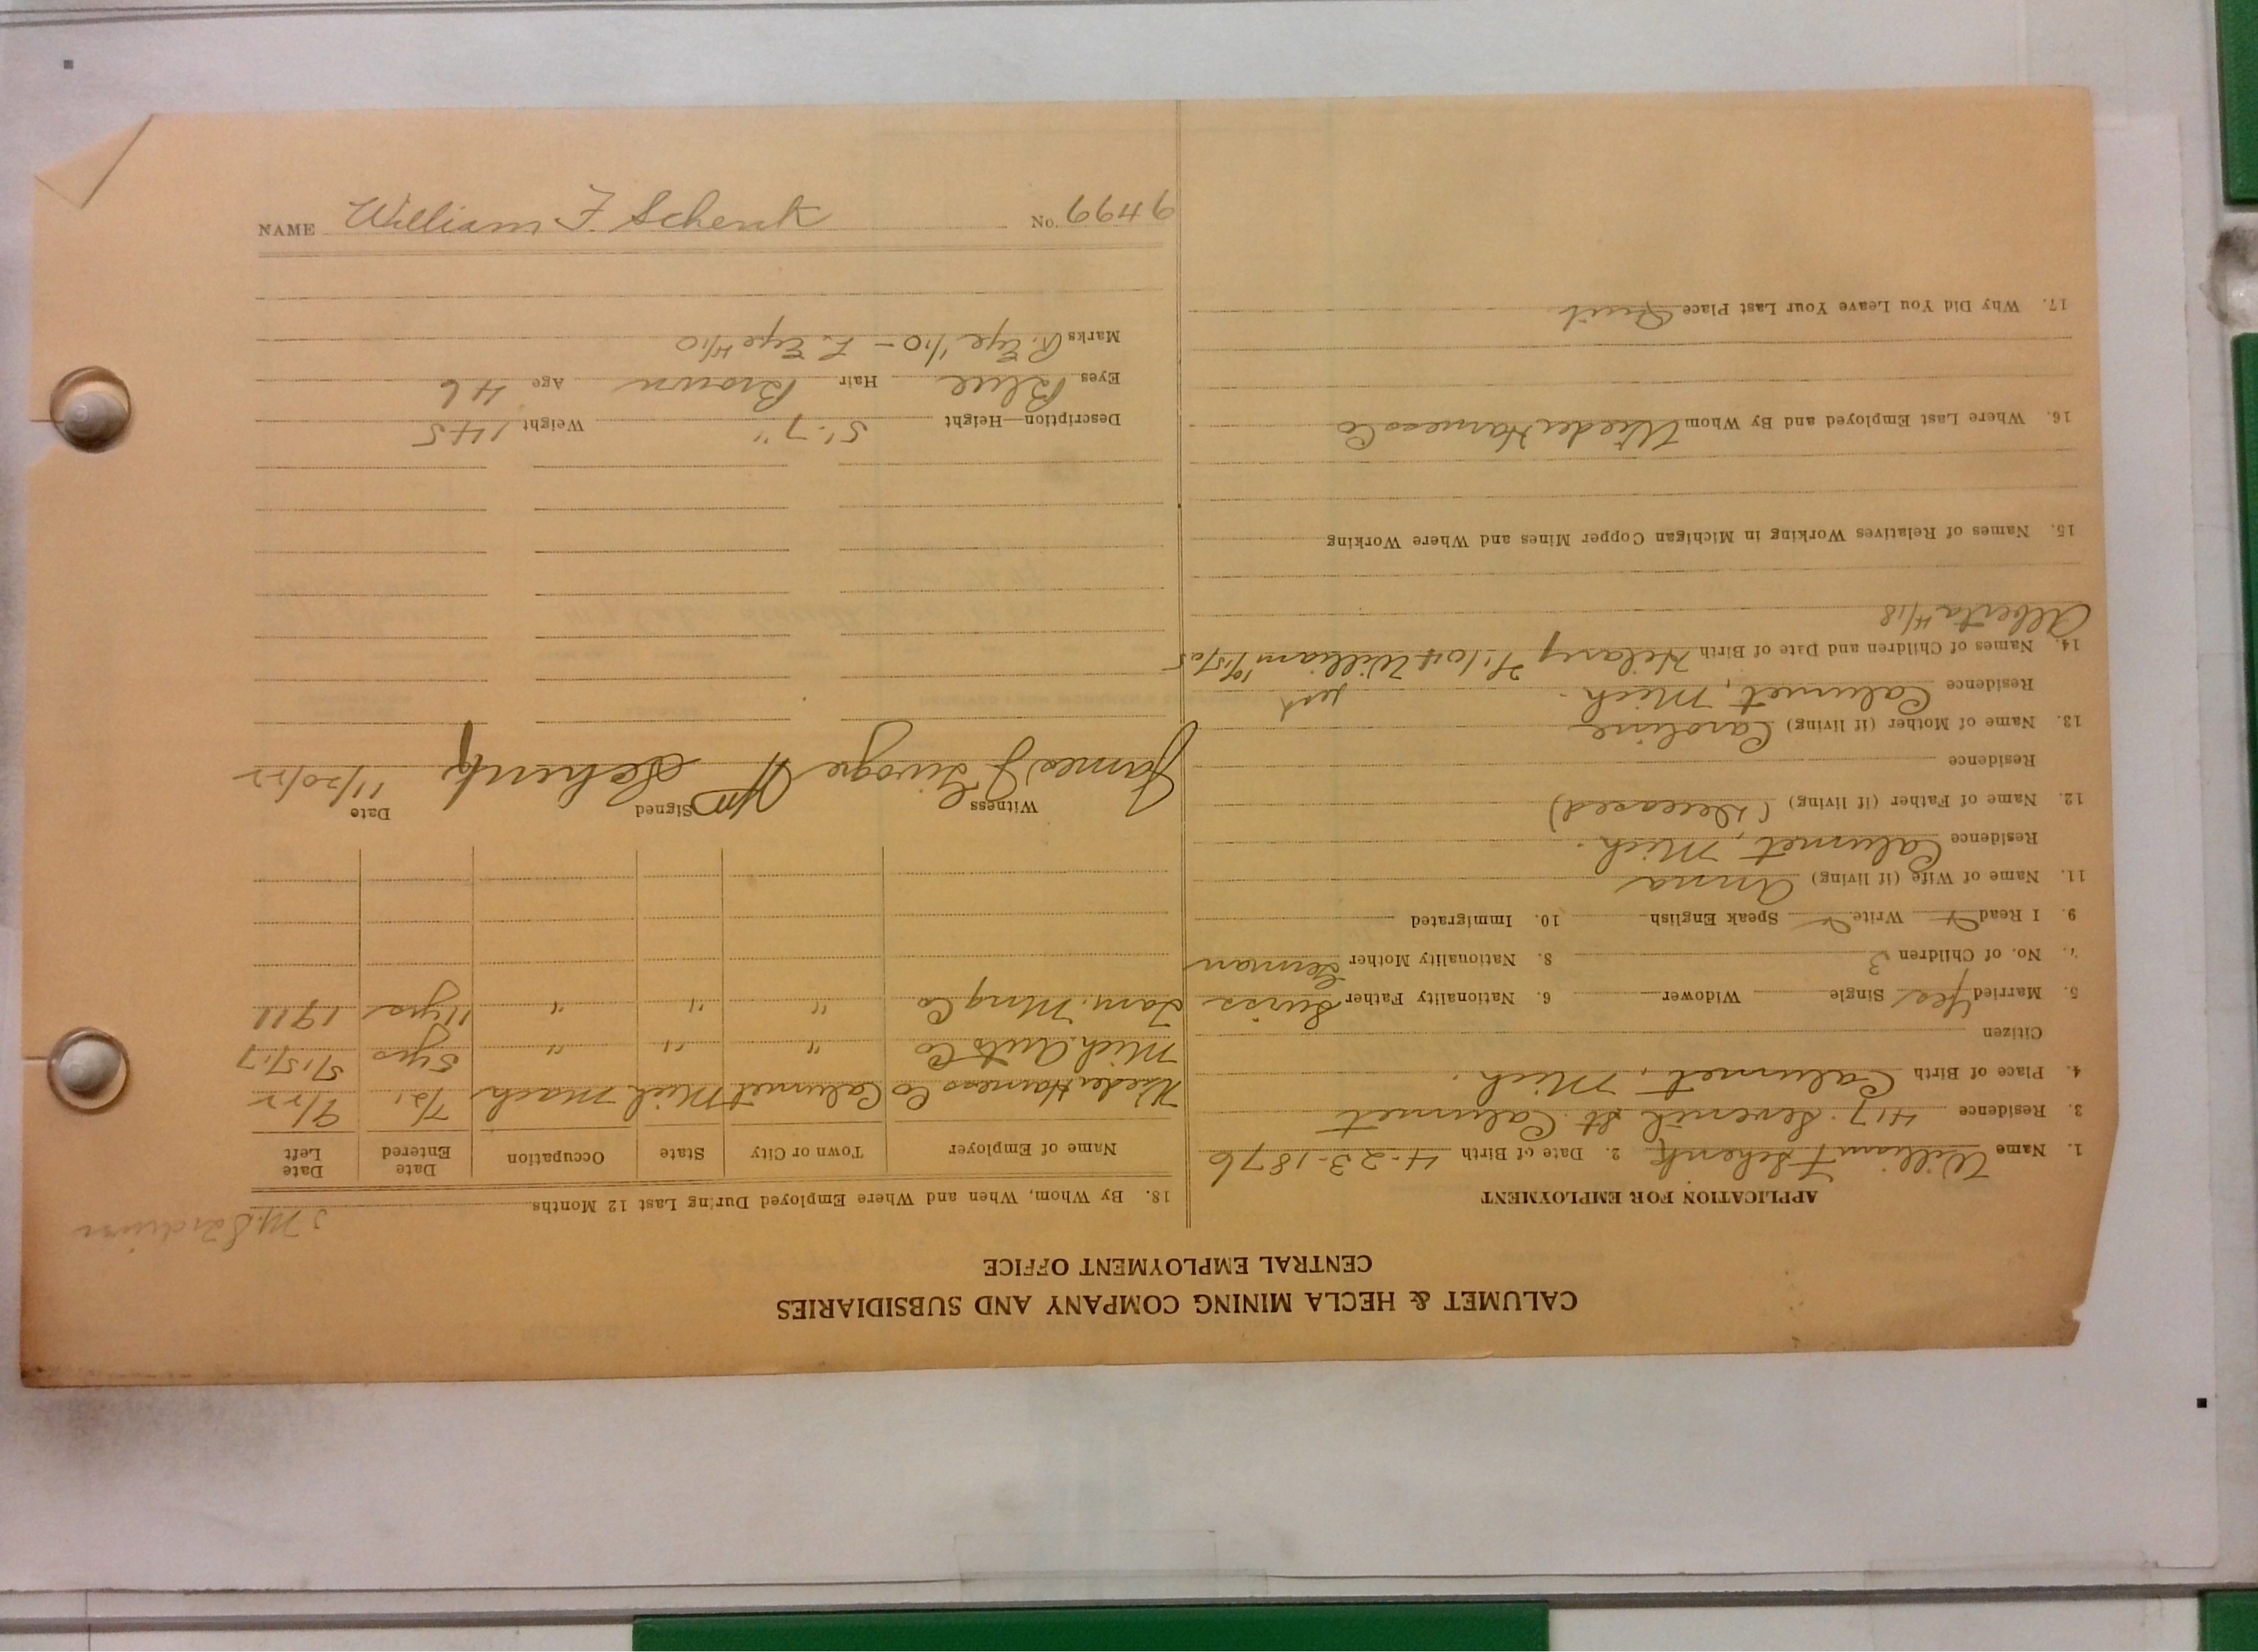 CALUMET & HECLA MINING COMPANY AND SUBSIDIARIES
CENTRAL EMPLOYMENT OFFICE
APPLICATION FOR EMPLOYMENT
1. Name William F Schenk 2. Date of Birth 4-23-1876
3. Residence 417. Seventh St. Calumet
4. Place of Birth Calumet, Mich.
Citizen
5. Married Yes Single Widower 6. Nationality Father Swiss
7. No. of Children 3 8. Nationality Mother German
9. I Read Write Speak English 10. Immigrated
11. Name of Wife (if living) Anna
Residence Calumet, Mich.
12. Name of Father (if living) (Deceased)
Residence
13. Name of Mother (if living) Caroline
Residence Calumet, Mich.
14. Names of Children and Date of Birth Hilary William
Alberta 4/18
15. Names of Relatives Working in Michigan Copper Mines and Where Working
16. Where Last Employed and By Whom Harness Co
17. Why Did You Leave Your Last Place Quit
18. By Whom, When and Where Employed During Last 12 Months
Name of Employer Town or City State Occupation Date Entered Date Left
Harness Co Calumet Mich Mach 7/21 9/22
Mich. Auto Co " " " 5 yrs 5/15/17
Tam. Mng Co " " " 11 yrs 1911
Witness Signed Date
James J Wm Schenk 11/20/22
Description—Height 5'-7" Weight 145
Eyes Blue Hair Brown Age 46
Marks R. Eye 1/10 - L. Eye 4/10
NAME William F. Schenk No. 9499